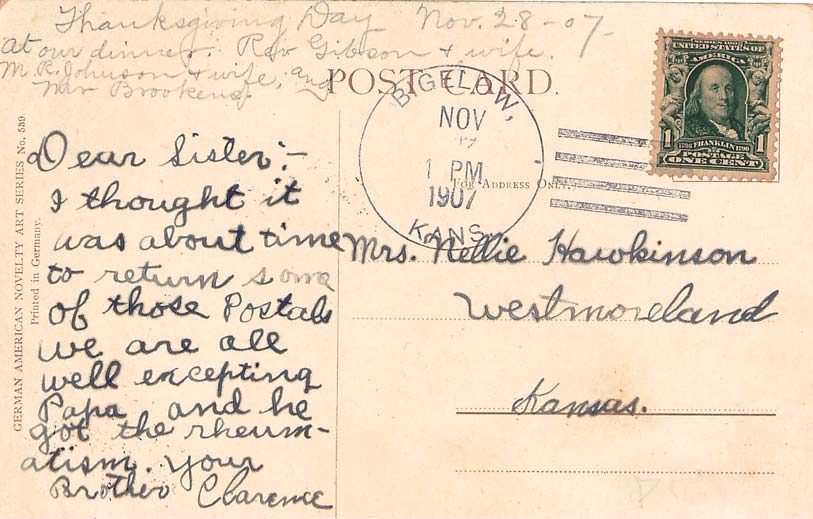 Thanksgiving Day Nov. 28-07-
at our dinner. Rev Gibson + wife.
M R. Johnson + wife, and
Mr Brookens.
POST CARD.
BIGELOW,
NOV
1 PM
1907
KANS.
SERIES 1902
UNITED STATES OF
AMERICA
1 1706 FRANKLIN 1790 1
POSTAGE
ONE CENT
FOR ADDRESS ONLY.
GERMAN AMERICAN NOVELTY ART SERIES No. 539.
Printed in Germany.
Dear Sister:-
I thought it
was about time
to return some
of those Postals
we are all
well excepting
Papa and he
got the rheum-
atism. your
Brother Clarence
Mrs. Nellie Hawkinson
Westmoreland
Kansas.